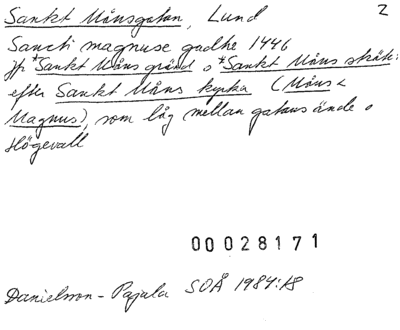 Sankt Månsgatan, Lund 2
Sancti magnuse gadhe 1446
jfr *Sankt Måns gränd o *Sankt Måns sträte:
efter Sankt Måns kyrka (Måns <
Magnus), som låg mellan gatans ände o
Högevall
00028171
Danielsson-Pajala SOÅ 1984:18